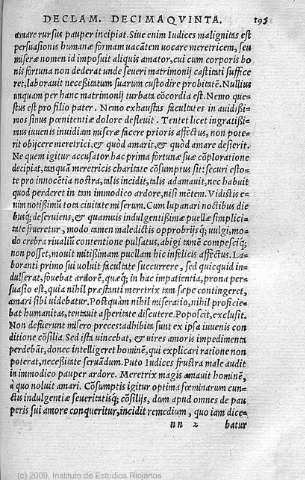 DECLAM. DECIMAQVINTA. 195
amare rursus pauper incipiat. Siue enim Iudices malignitas est
persuasionis humanæ formam uacātem uocare meretricem, seu
miseræ nomen id imposuit aliquis amator, cui cum corporis bo
nis fortuna non dederat unde seueri matrimonij castitati suffice
ret, laborauit necessitatum suarum custodire probitatē. Nullius
unquam per hanc matrimonij turbata cōcordia est. Nemo que-
stus est pro filio pater. Nemo exhaustas facultates in auidissi-
mos sinus pœnitentiæ dolore defleuit. Tentet licet ingratissi-
mus iuuenis inuidiam miseræ facere prioris affectus, non pote-
rit obijcere meretrici, & quòd amarit, & quòd amare desierit.
Ne quem igitur accusator hac prima fortunæ suæ cōploratione
decipiat, tanquā meretricis charitate cōsumptus sit: securi esto-
te pro innocētia nostra, talis incidit, talis adamauit, nec habuit
quod perderet in tam immodico ardore, nisi mētem. Vidistis e-
nim notissimū tota ciuitate miserum. Cum lupanari noctibus die
busq; deseruiens, & quamuis indulgentissimæ puellæ simplici-
tate frueretur, modo tamen maledictis opprobrijsq; uulgi, mo-
do crebra riualiū contentione pulsatus, abigi tamē compescíq;
non posset, mouit mitissimam puellam hic infelicis affectus. La-
boranti primo sui uoluit facultate succurrere, sed quicquid in-
dulserat, fouebat ardorē, quæq; in hac impatientia, prona per-
suasio est, quia nihil præstanti meretrix tam sæpe contingeret,
amari sibi uidebatur. Postquàm nihil miseratio, nihil proficie-
bat humanitas, tentauit asperitate discutere. Poposcit, exclusit.
Non defuerunt misero preces: adhibim sunt ex ipsa iuuenis con
ditione cōsilia. Sed ista uincebat, & uires amoris impedimenta
perdebāt, donec intelligeret hominē, qui explicari ratione non
poterat, necessitate seruādum. Puto Iudices frustra male audit
in immodico pauper ardore. Meretrix magis amauit hominē,
à quo noluit amari. Cōsumptis igitur optima fœminarum cun-
ctis indulgentiæ seueritatisq; cōsilijs, dum apud omnes de pau
peris sui amore conqueritur, incidit remedium, quo iam dice-
nn 2 batur
(c) 2009. Instituto de Estudios Riojanos